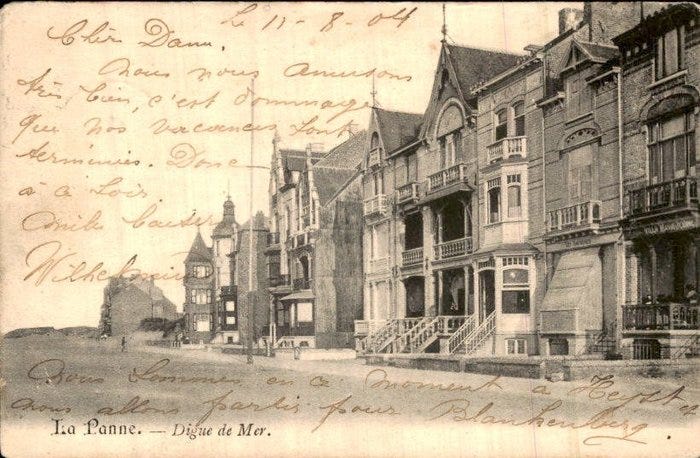 le 11 - 8 - 04
Chèr Dam.
nous nous Amusons
très bien, c'est dommage
que nos vacances sont
terminés. Donc
à ce soir
mille baiser
Wilhelmine
Nous sommes en ce moment à Heyst
nous allons partir pour Blankenberg
La Panne. — Digue de Mer.